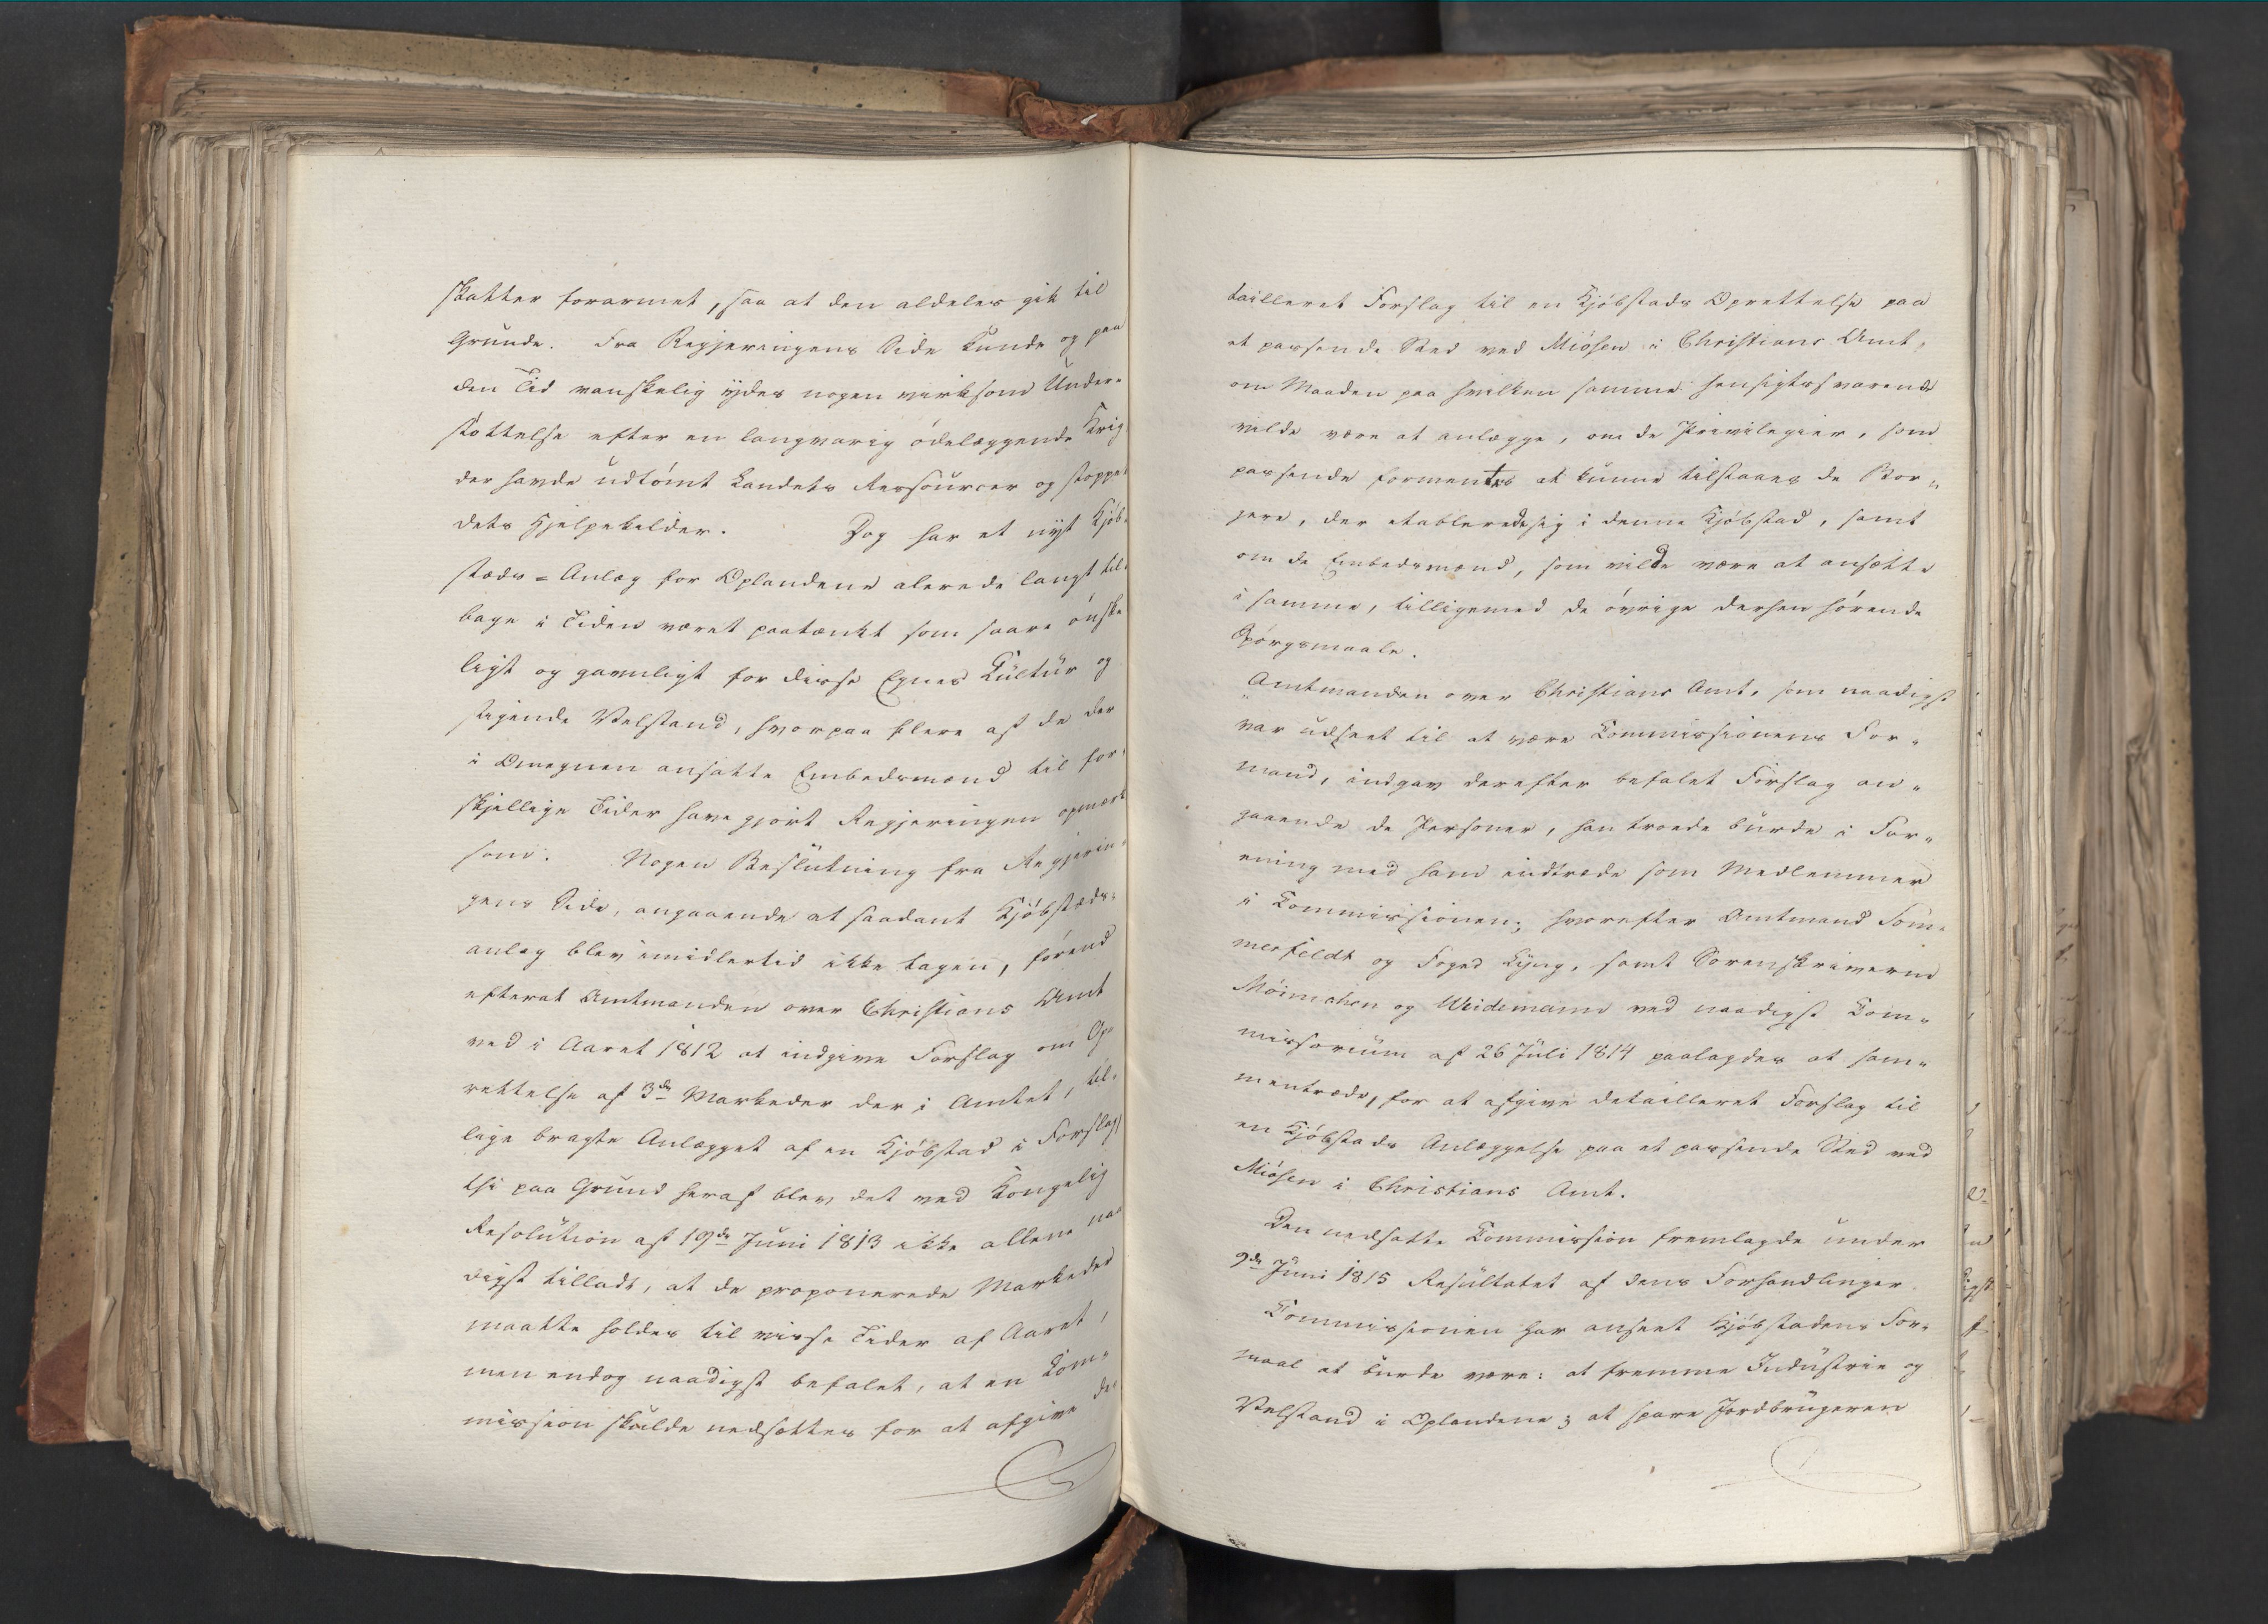 skatter forarmet, saa at den aldeles gik til
Grunde. Fra Regjeringens Side kunde og paa
den Tid vanskelig ydes nogen virksom Under-
støttelse efter en langvarig ødelæggende Krig
der havde udtømt Landets Ressourcer og stoppet
dets Hjelpekilder. Dog har et nyt Kjøb-
stæds-Anlæg for Oplandene alerede langt til-
bage i Tiden været paatænkt som saare ønske
ligt og gavnligt for disse Egnes Kultur og
stigende Velstand, hvorpaa flere af de der
i Omegnen ansatte Embedsmænd til for-
skjellige Tider have gjort Regjeringen opmærk
som. Nogen Beslutning fra Regjerin-
gens Side, angaaende at saadant Kjøbstæds-
anlæg blev imidlertid ikke tagen, førend
efterat Amtmanden over Christians Amt
ved i Aaret 1812 at indgive Forslag om Op-
rettelse af 3de Markeder der i Amtet, til-
lige bragte Anlægget af en Kjøbstad i Forslag,
thi paa Grund heraf blev det ved Kongelig
Resolution af 19de Juni 1813 ikke allene naa
digst tilladt, at de proponerede Markeder
maatte holdes til visse Tider af Aaret,
men endog naadigst befalet, at en Com-
mission skulde nedsættes for at afgive de-
tailleret Forslag til en Kjøbstads Oprettelse paa
et passende Sted ved Miösen i Christians Amt,
om Maaden paa hvilken samme hensigtssvarende
vilde være at anlægge, om de Privilegier, som
passende formentes at kunne tilstaaes de Bor-
gere, der etablerede sig i denne Kjøbstad, samt
om de Embedsmænd, som vilde være at ansætte
i samme, tilligemed de øvrige derhen hørende
Spørgsmaale.
Amtmanden over Christians Amt, som naadigst
var udseet til at være Commissionens For-
mand, indgav derefter befalet Forslag an-
gaaende de Personer, han troede burde i For-
ening med ham indtræde som Medlemmer
i Commissionen; hvorefter Amtmand Som-
merfeldt og Foged Lyng, samt Sorenskriverne
Möinichen og Weidemann ved naadigst Com-
missorium af 26 Juli 1814 paalagdes at sam-
mentræde, for at afgive detailleret Forslag til
en Kjøbstads Anlæggelse paa et passende Sted ved
Miösen i Christians Amt.
Den nedsatte Commission fremlagde under
9de Juni 1815 Resultatet af dens Forhandlinger.
Commissionen har anseet Kjøbstadens For-
maal at burde være: at fremme Industrie og
Velstand i Oplandene; at spare Jordbrugeren